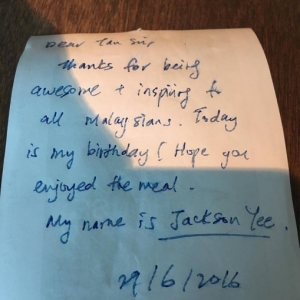 Dear Tan Sri
Thanks for being
awesome + inspiring to
all Malaysians. Today
is my birthday! Hope you
enjoyed the meal.
My name is Jackson Yee.
29/6/2016